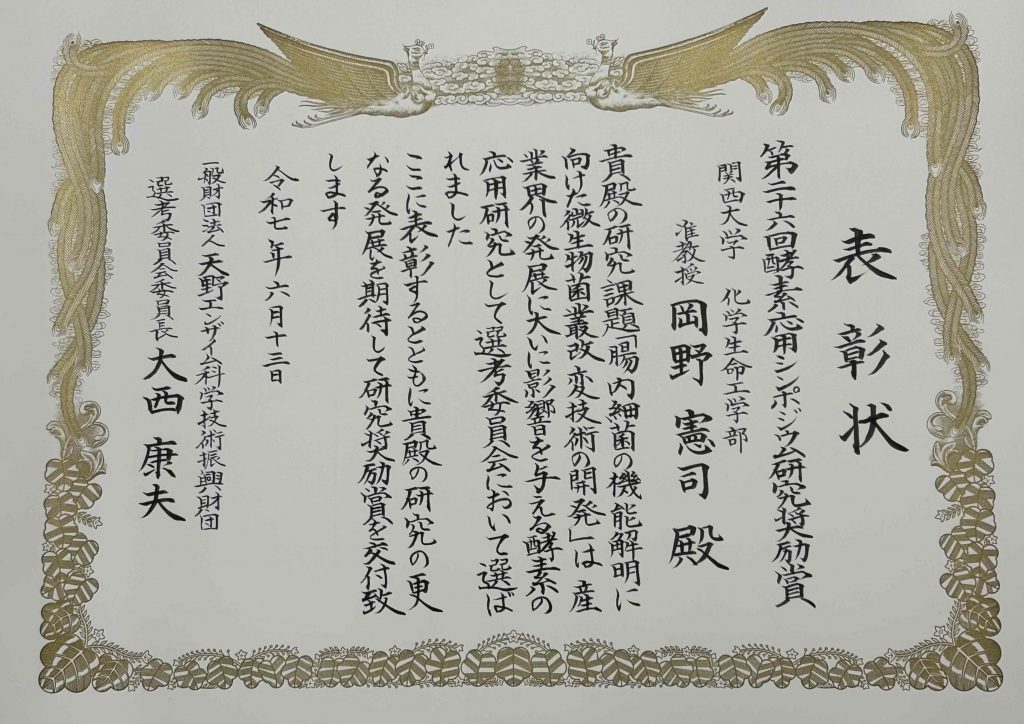 表彰状
第二十六回酵素応用シンポジウム研究奨励賞
関西大学 化学生命工学部
准教授 岡野 憲司 殿
貴殿の研究課題「腸内細菌の機能解明に
向けた微生物菌叢改変技術の開発」は 産
業界の発展に大いに影響を与える酵素の
応用研究として 選考委員会において選ば
れました
ここに表彰するとともに貴殿の研究の更
なる発展を期待して研究奨励賞を交付致
します
令和七年六月十三日
一般財団法人 天野エンザイム科学技術振興財団
選考委員会委員長 大西 康夫